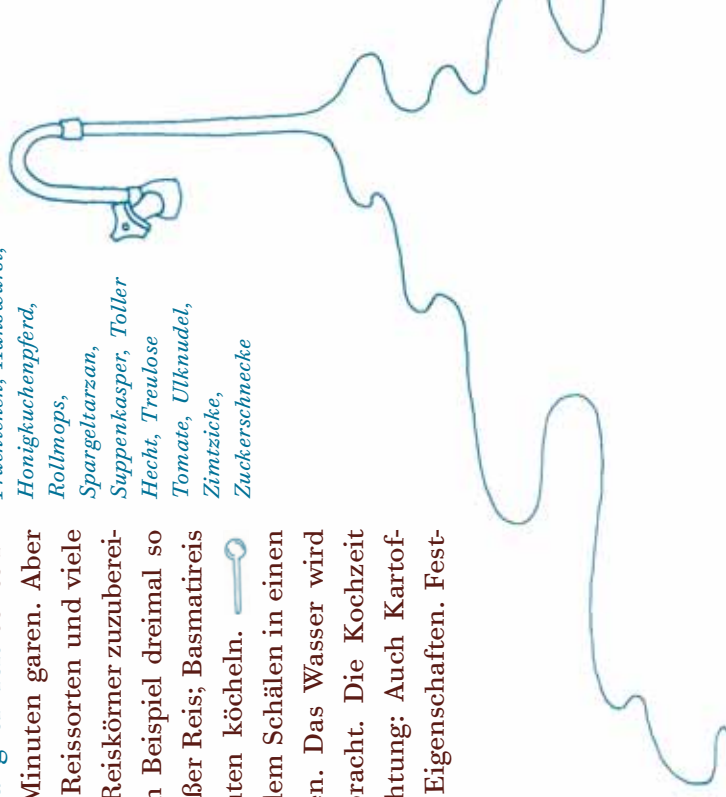 Minuten garen. Aber
Reissorten und viele
Reiskörner zuzuberei-
Beispiel dreimal so
ßer Reis; Basmatireis
ten köcheln.
Schälen in einen
en. Das Wasser wird
racht. Die Kochzeit
htung: Auch Kartof-
Eigenschaften. Fest-
Honigkuchenpferd,
Rollmops,
Spargeltarzan,
Suppenkasper, Toller
Hecht, Treulose
Tomate, Ulknudel,
Zimtzicke,
Zuckerschnecke